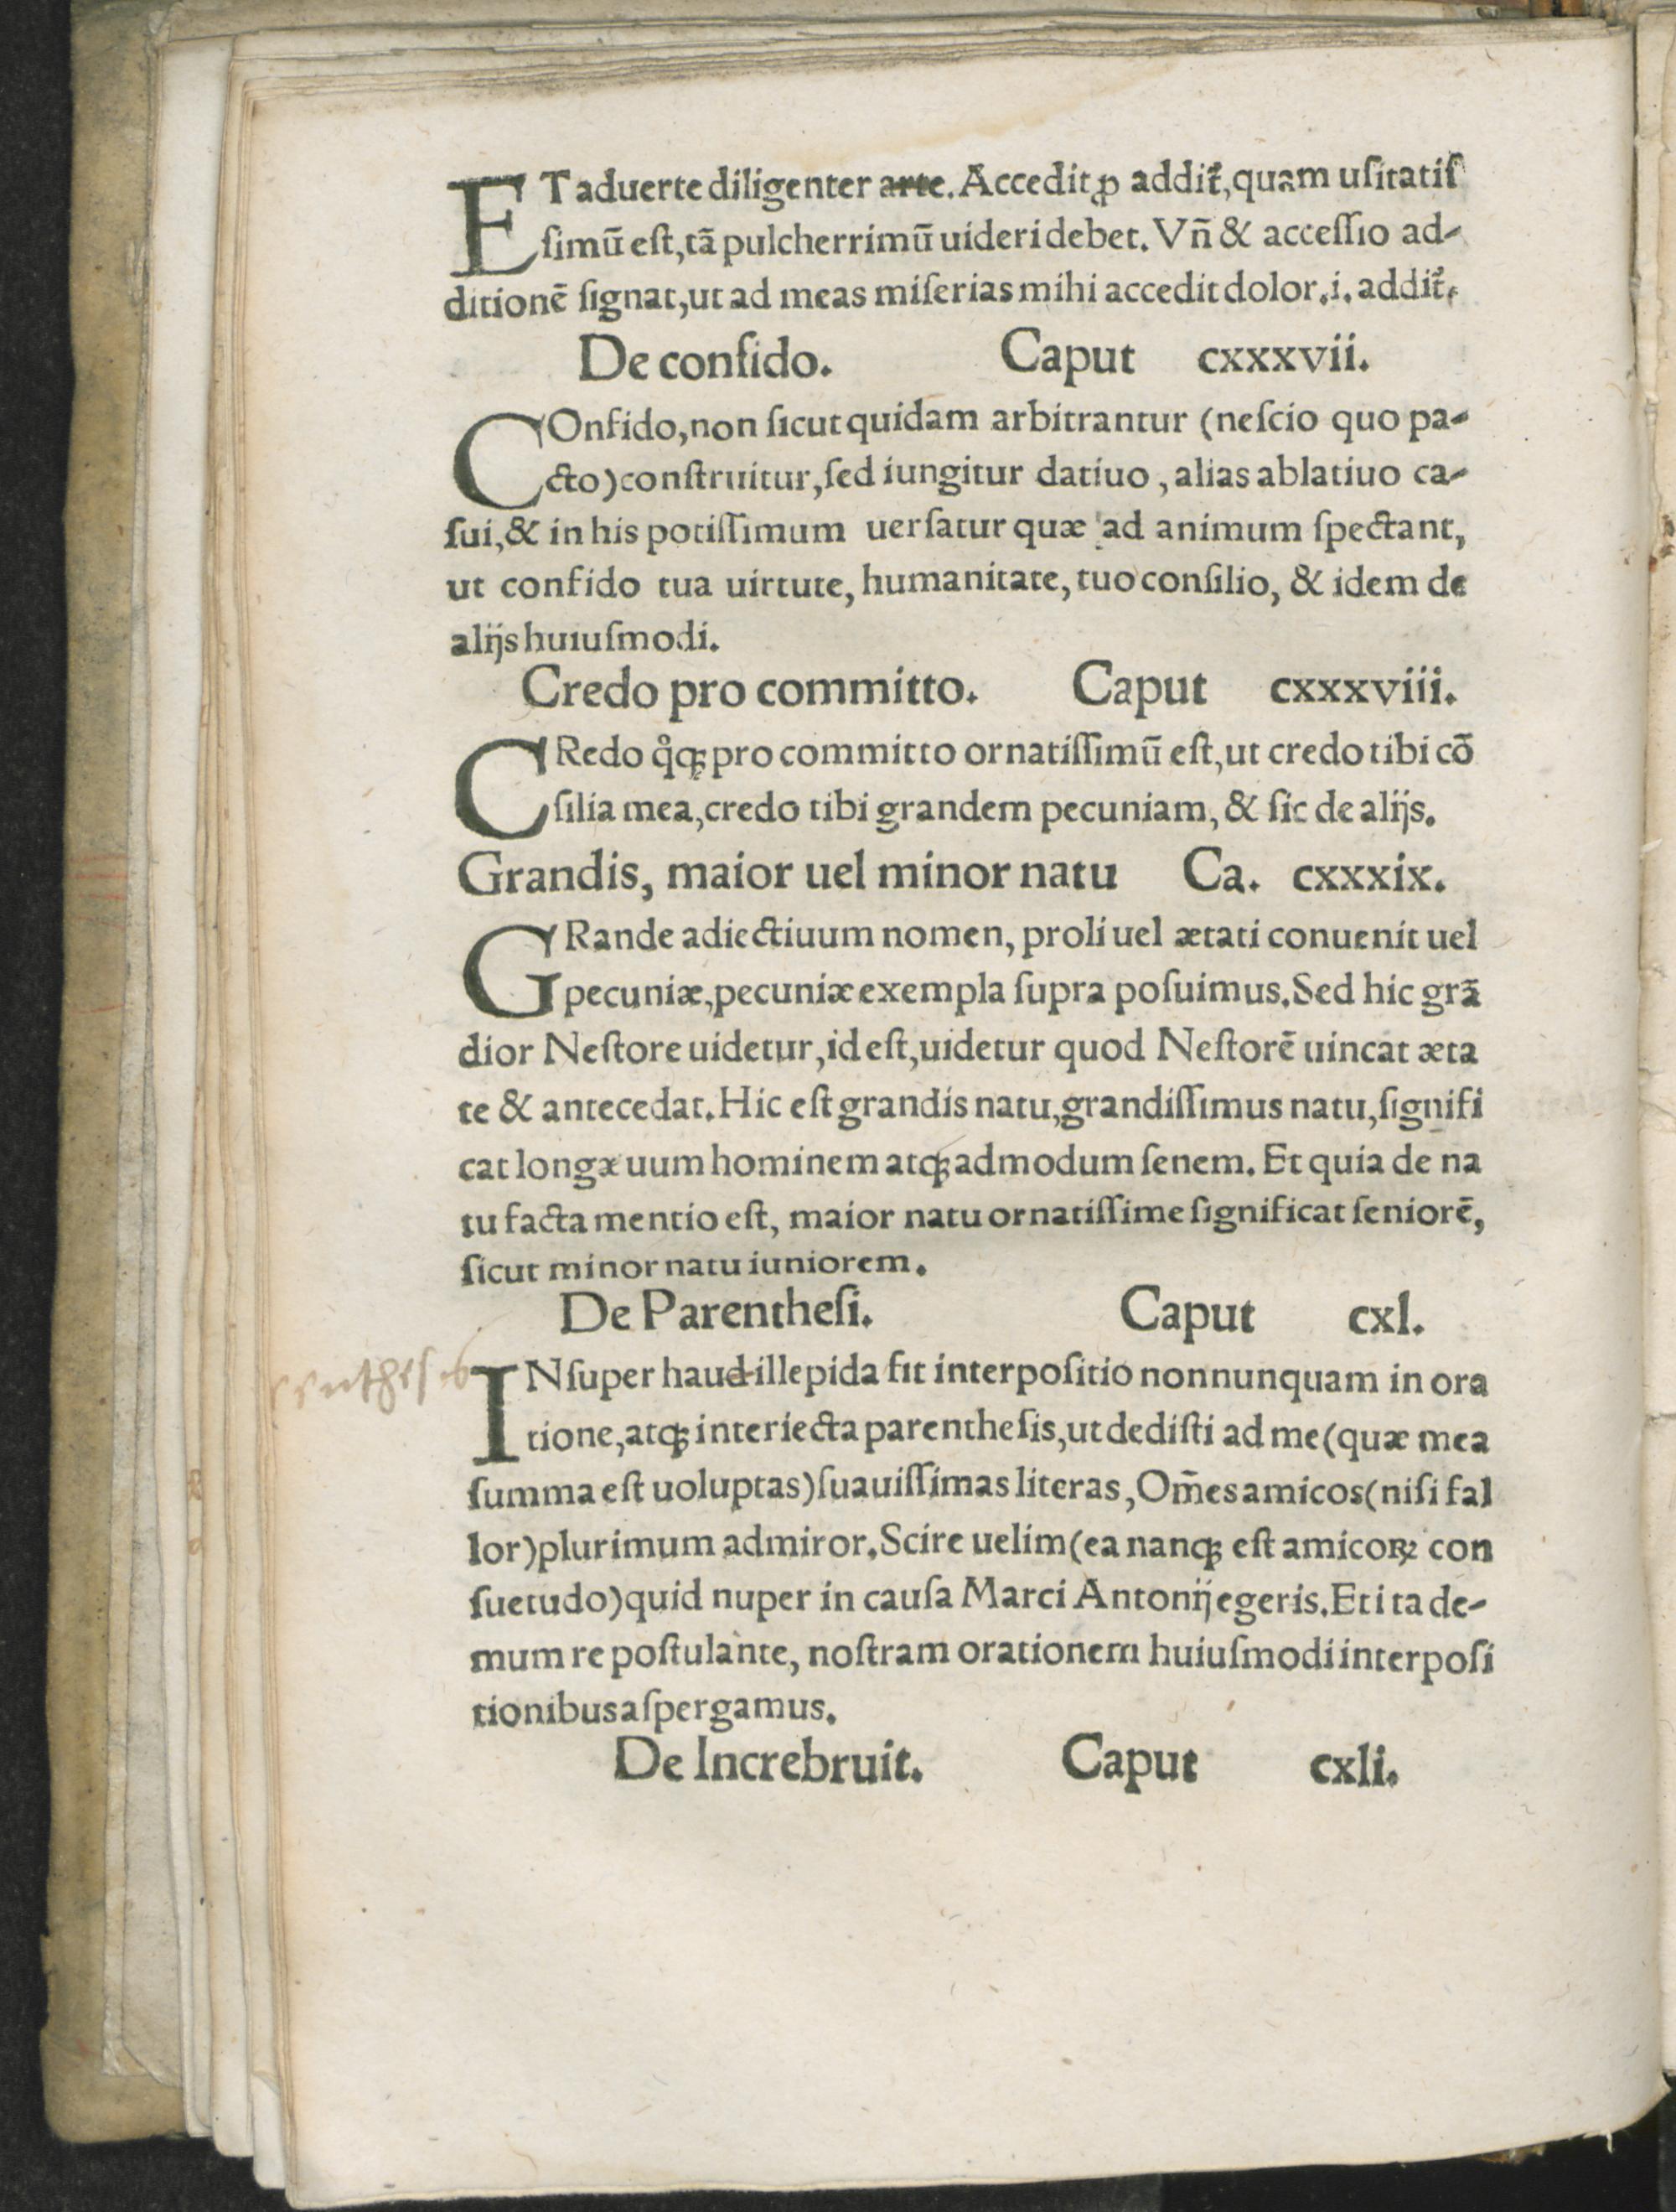 ET aduerte diligenter arte. Accedit ꝓ addit᷑, quam uſitatiſ
ſimū eſt, tã pulcherrimū uideri debet. Vñ & acceſſio ad-
ditionē ſignat, ut ad meas miſerias mihi accedit dolor .i. addit᷑.
De confido. Caput cxxxvii.
COnfido, non ſicut quidam arbitrantur (neſcio quo pa-
cto) conſtruitur, ſed iungitur datiuo, alias ablatiuo ca-
ſui, & in his potiſſimum uerſatur quæ ad animum ſpectant,
ut confido tua uirtute, humanitate, tuo conſilio, & idem de
alijs huiuſmodi.
Credo pro committo. Caput cxxxviii.
CRedo q̊q; pro committo ornatiſſimū eſt, ut credo tibi cō
ſilia mea, credo tibi grandem pecuniam, & ſic de alijs.
Grandis, maior uel minor natu Ca. cxxxix.
GRande adiectiuum nomen, proli uel ætati conuenit uel
pecuniæ, pecuniæ exempla ſupra poſuimus. Sed hic grã
dior Neſtore uidetur, id eſt, uidetur quod Neſtorē uincat æta
te & antecedat. Hic eſt grandis natu, grandiſſimus natu, ſignifi
cat longæuum hominem atq; admodum ſenem. Et quia de na
tu facta mentio eſt, maior natu ornatiſſime ſignificat ſeniorē,
ſicut minor natu iuniorem.
De Parentheſi. Caput cxl.
INſuper haud illepida fit interpoſitio nonnunquam in ora
tione, atq; interiecta parentheſis, ut dediſti ad me (quæ mea
ſumma eſt uoluptas) ſuauiſſimas literas, Om̃es amicos (niſi fal
lor) plurimum admiror. Scire uelim (ea nanq; eſt amicoꝝ con
ſuetudo) quid nuper in cauſa Marci Antonij egeris. Et ita de-
mum re poſtulante, noſtram orationem huiuſmodi interpoſi
tionibus aſpergamus.
De Increbruit. Caput cxli.